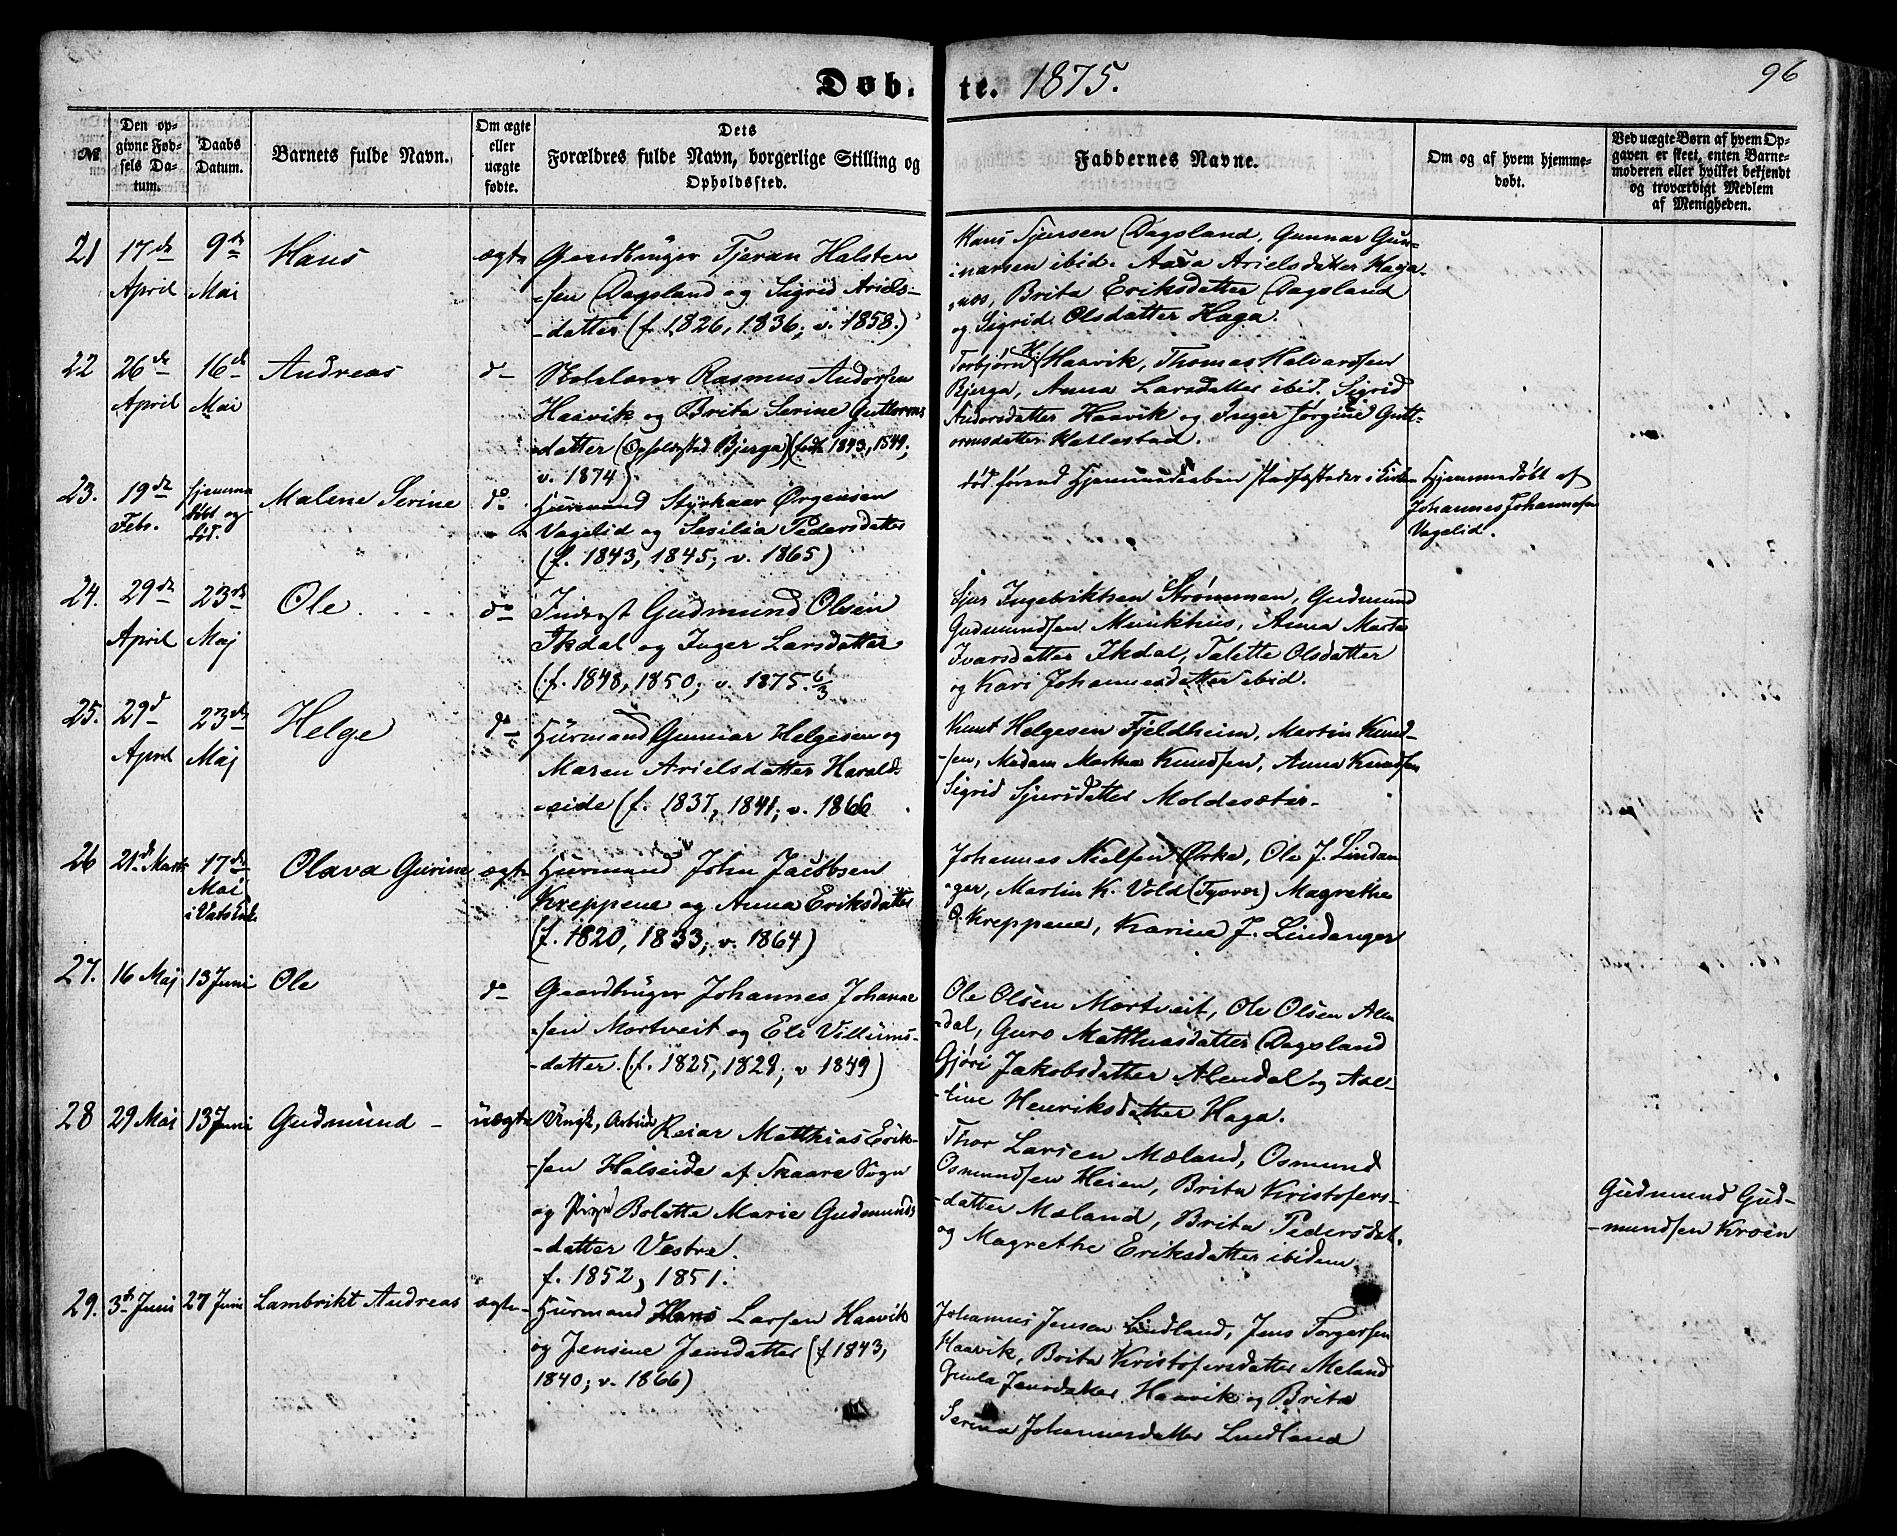 Døbte. 1875.
96
№
Den opgivne Fødsels Datum.
Daabs Datum.
Barnets fulde Navn.
Om ægte eller uægte fødte.
Dets Forældres fulde Navn, borgerlige Stilling og Opholdssted.
Faddernes Navne.
Om og af hvem hjemmedøbt.
Ved uægte Børn af hvem Opgaven er skeet, enten Barnemoderen eller hvilket bekjendt og troværdigt Medlem af Menigheden.
21 17de April 9de Mai Hans ægte
Gaardbruger Fjeran Halsten
-sen Dagsland og Sigrid Ariels-
-datter (f. 1826, 1836; v. 1858.)
Hans Sjursen Dagsland, Gunnar Gun-
narsen ibid. Aasa Arielsdatter Haga-
Brita Eriksdatter Dagsland
og Sigrid Olsdatter Haga.
22 26de April 16de Mai Andreas do
Skolelærer Rasmus Andorsen
Haavik og Brita Serine Guttorms
datter (Opholdssted Bjerga) (født 1843, 1849;
v. 1874)
Torbjørn H. Haavik, Thomas Halvardsen
Bjerga, Anna Larsdatter ibid, Sigrid
Andorsdatter Haavik og Inger Jorgine Gutt-
ormsdatter Hallestad.
23. 19de Febr. hjemme døbt og død. Malene Serine do
Huusmand Styrkaar Ørgensen
Vagelid og Sesilia Pedersdatter
(f. 1843, 1845, v. 1865)
død førend Hjemmedaaben stadfæstedes i Kirken
Hjemmedøbt af
Johannes Johannesen
Vagelid.
24. 29de April 23de Maj Ole do
Inderst Gudmund Olsen
Ikdal og Inger Larsdatter
(f. 1848, 1850; v. 1875. 6/3
Sjur Ingebriktsen Strømmen, Gudmund
Gudmundsen Munkhus, Anna Marta
Ivarsdatter Ikdal, Talette Olsdatter
og Kari Johannesdatter ibid.
25. 29d April 23de Maj Helge do
Huusmand Gunnar Helgesen og
Maren Arielsdatter Harald-
-seide (f. 1837, 1841; v. 1866
Knut Helgesen Fjeldheim, Martin Knud-
-sen, Madam Martha Knudsen, Anna Knudsen
Sigrid Sjursdatter Moldesæter.
26 21de Marts 17de Mai i Vats Kirke Olava Gurine ægte
Huusmand John Jacobsen
Kreppene og Anna Eriksdatter
(f. 1820, 1833; v. 1864)
Johannes Nielsen Ørke, Ole J. Lindan
-ger, Martin K. Vold (Tysver) Magrethe
O. Kreppene, Karina J. Lindanger
27. 16 Maj 13 Juni Ole do
Gaardbruger Johannes Johanne
-sen Mortveit og Eli Villums-
-datter. (f. 1825, 1829; v 1849)
Ole Olsen Mortveit, Ole Olsen Alen
-dal, Guro Matthiasdatter Dagsland
Gjøri Jakobsdatter Alendal og Ase-
-line Henriksdatter Haga.
28 29 Mai 13 Juni Gudmund uægte
Ungk, Arbeider Reiar Matthias Erik-
-sen Halseide af Skaare Sogn
og Pige Bolette Marie Gudmunds
-datter Vestre.
f. 1852, 1851.
Thor Larsen Mæland, Osmund
Osmundsen Heien, Brita Kristofers-
-datter Mæland, Brita Pedersdat.
og Magrethe Eriksdatter ibidem
Gudmund Gud-
-mundsen Kroen
29. 3de Juni 27 Juni Lambrikt Andreas ægte
Huusmand Hans Larsen Haavik
og Jensine Jensdatter (f 1843,
1840; v. 1866)
Johannes Jensen Lindland, Jens Torgersen
Haavik, Brita Kristofersdatter Meland
Gunla Jensdatter Haavik og Brita
Serina Johannesdatter Lindland